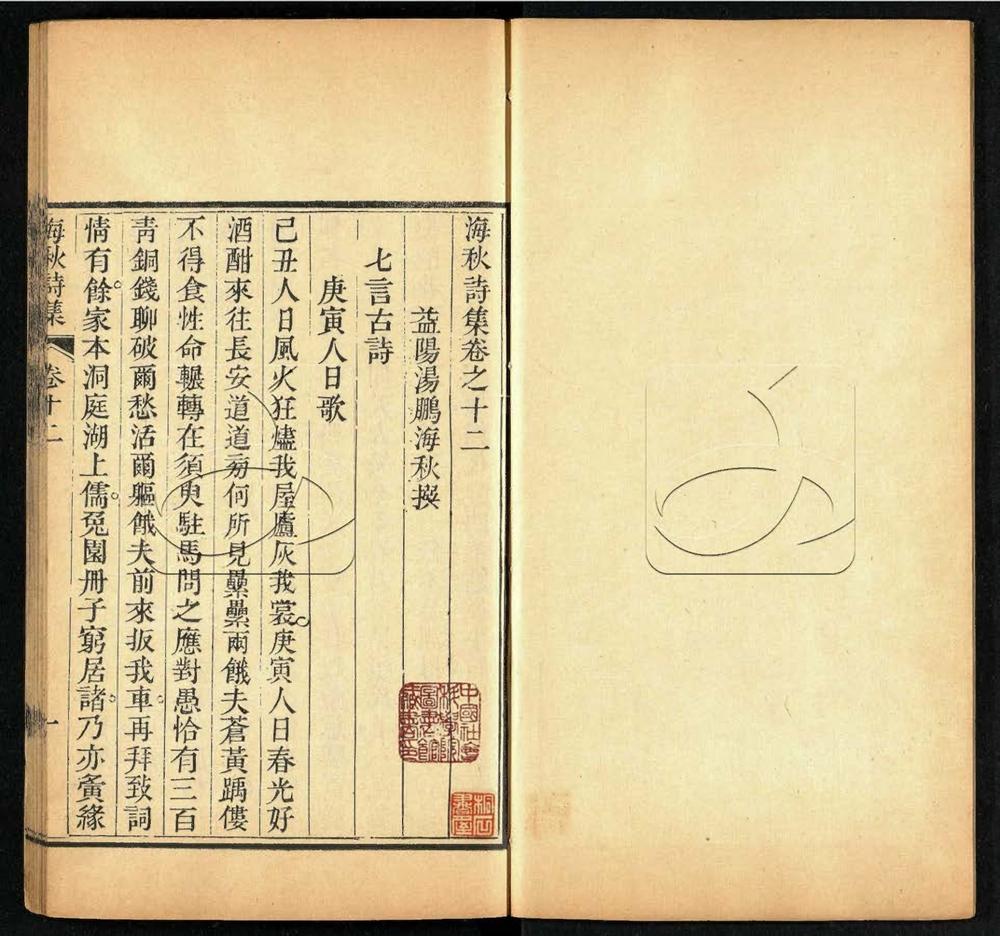 海秋詩集卷之十二
益陽湯鵬海秋撰
七言古詩
庚寅人日歌
己丑人日風火狂燼我屋廬灰我裳庚寅人日春光好
酒酣來往長安道道旁何所見纍纍兩餓夫蒼黃踽僂
不得食性命輾轉在須臾駐馬問之應對愚恰有三百
靑銅錢聊破爾愁活爾軀餓夫前來扳我車再拜致詞
情有餘家本洞庭湖上儒兎園冊子窮居諸乃亦夤緣
海秋詩集 卷十二 一
中國社會
科學院
圖書館
藏書